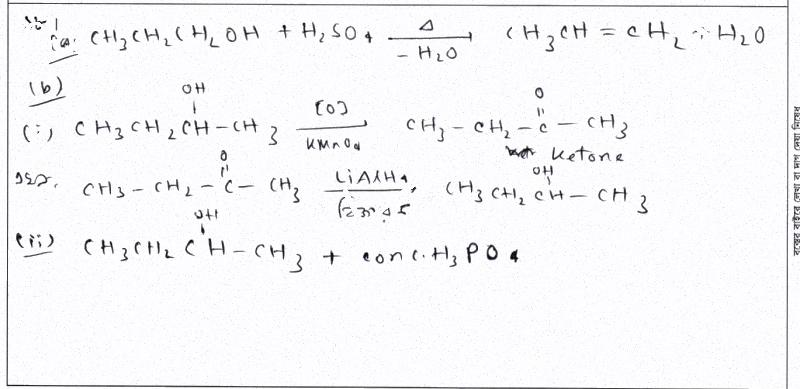 (a) CH3CH2CH2OH + H2SO4 Δ → - H2O CH3CH = CH2 + H2O
(b)
(i) CH3CH2CH(OH)-CH3 [O] KMnO4 CH3 - CH2 - C(=O) - CH3
Ketone
CH3 - CH2 - C(=O) - CH3 LiAlH4 CH3CH2CH(OH) - CH3
(ii) CH3CH2CH(OH) - CH3 + conc. H3PO4